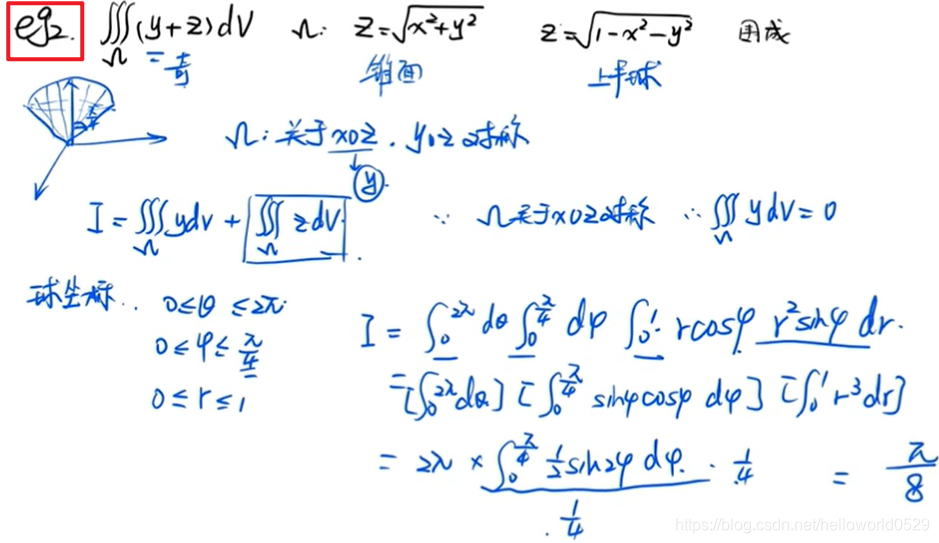 eg2. ∭_Ω (y+z)dV Ω: z=√(x²+y²) z=√(1-x²-y²) 围成
锥面 上半球
π/4
Ω: 关于xoz, yoz对称
y
I = ∭_Ω ydv + ∭_Ω zdv. ∵ Ω关于xoz对称 ∴ ∭_Ω ydv = 0
球坐标.. 0≤θ≤2π
0≤φ≤π/4
0≤r≤1
I = ∫_0^{2π} dθ ∫_0^{π/4} dφ ∫_0^1 rcosφ r²sinφ dr.
= [∫_0^{2π} dθ] [∫_0^{π/4} sinφcosφ dφ] [∫_0^1 r³dr]
= 2π × ∫_0^{π/4} 1/2 sin2φ dφ · 1/4 = π/8
1/4
https://blog.csdn.net/helloworld0529